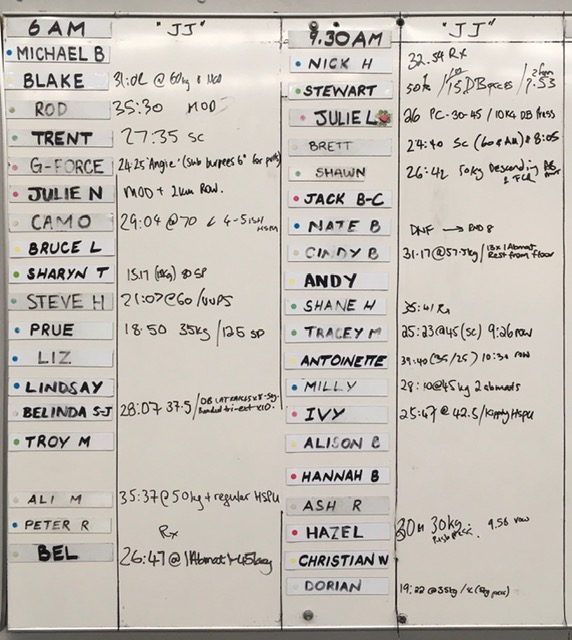 6 AM "JJ"
MICHAEL B
BLAKE 31:02 @ 60kg MOD
ROD 35:30 MOD
TRENT 27:35 SC
G-FORCE 24:25 'Angie' (sub burpees 6" for
JULIE N MOD + 2km Row.
CAMO 29:04 @ 70 4-5ish
HSM
BRUCE L
SHARYN T 15.17 SP
STEVE H 21:07 @ 60 /
PRUE 18.50 35kg / 125 SP
LIZ
LINDSAY
BELINDA S-J 28:07 37.5 / DB
Banded tri-ext x10.
TROY M
ALI M 35:37 @ 50kg + regular HSPU
PETER R Rx
BEL 26:47 @ 1 Abmat 45kg
9.30AM "JJ"
NICK H 32.54 Rx
STEWART 50k / 15 DB / 7.53
JULIE L 26 PC-30-45 / 10kg DB Press
BRETT 24:40 SC (60 8:05
SHAWN 26:42 50kg Descending
JACK B-C
NATE B DNF → RND 8
CINDY B 31.17 @ 57.5kg / 1 Abmat
Rest from floor
ANDY
SHANE H 35:41 Rx
TRACEY M 25:23 @ 45 (SC) 9:26 row
ANTOINETTE 39:40 (35/25) 10:30 row
MILLY 28:10 @ 45kg 2 abmats
IVY 25:47 @ 42.5 / Kipping HSPU
ALISON C
HANNAH B
ASH R
HAZEL 30kg 9.58 row
CHRISTIAN W
DORIAN 19:22 @ 35kg